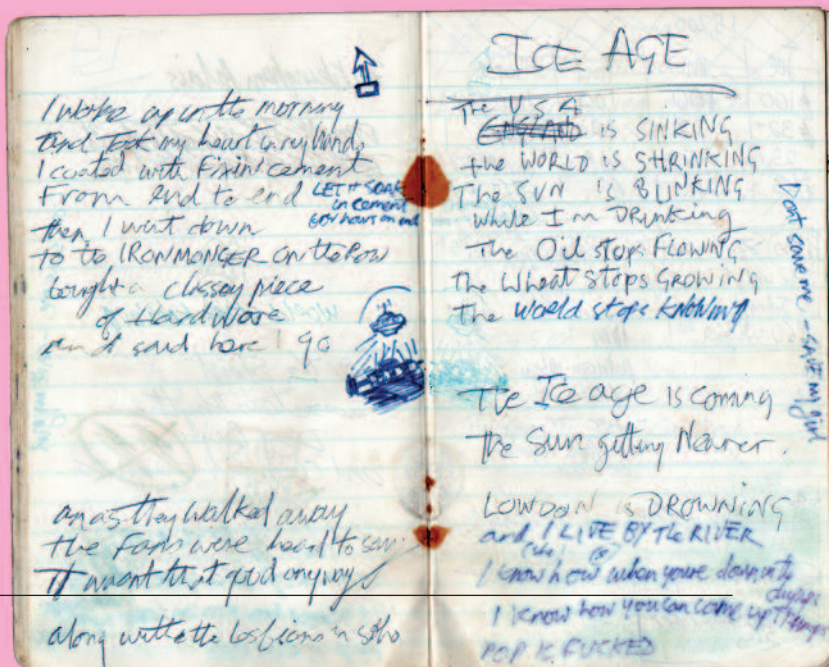 I woke up in the morning
and took my heart in my hands
I coated with Finini cement
From end to end
LET IT SOAK
in cement
for hours on end
then I went down
to the IRONMONGER on the Row
bought a classey piece
of Hardware
and said here I go
an as they walked away
the Fans were heard to say
it wasnt that good anyway
along with the lesbians in soho
ICE AGE
The USA
ENGLAND is SINKING
the WORLD IS SHRINKING
The SUN is BLINKING
while I'm DRINKING
The Oil stops FLOWING
The Wheat stops GROWING
The World stops KNOWING
Dont save me - SAVE my girl
The Ice age is coming
the Sun getting Nearer.
LONDON is DROWNING
and I LIVE BY The RIVER
I know how when youre down in the
dumps
I know how you can come up
POP IS FUCKED